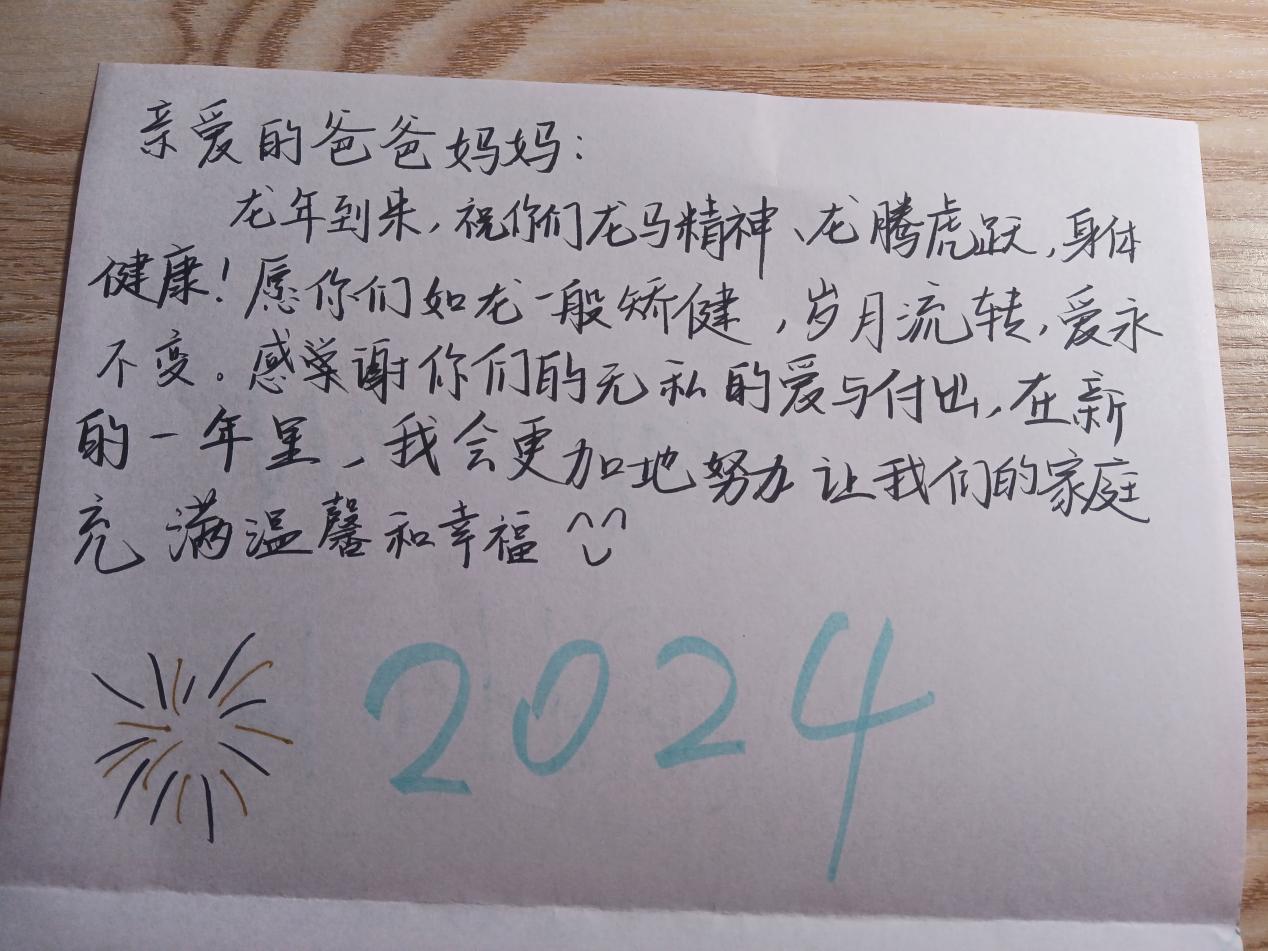 亲爱的爸爸妈妈：
龙年到来，祝你们龙马精神、龙腾虎跃，身体
健康！愿你们如龙一般矫健，岁月流转，爱永
不变。感谢你们的无私的爱与付出，在新
的一年里，我会更加地努力让我们的家庭
充满温馨和幸福
2024